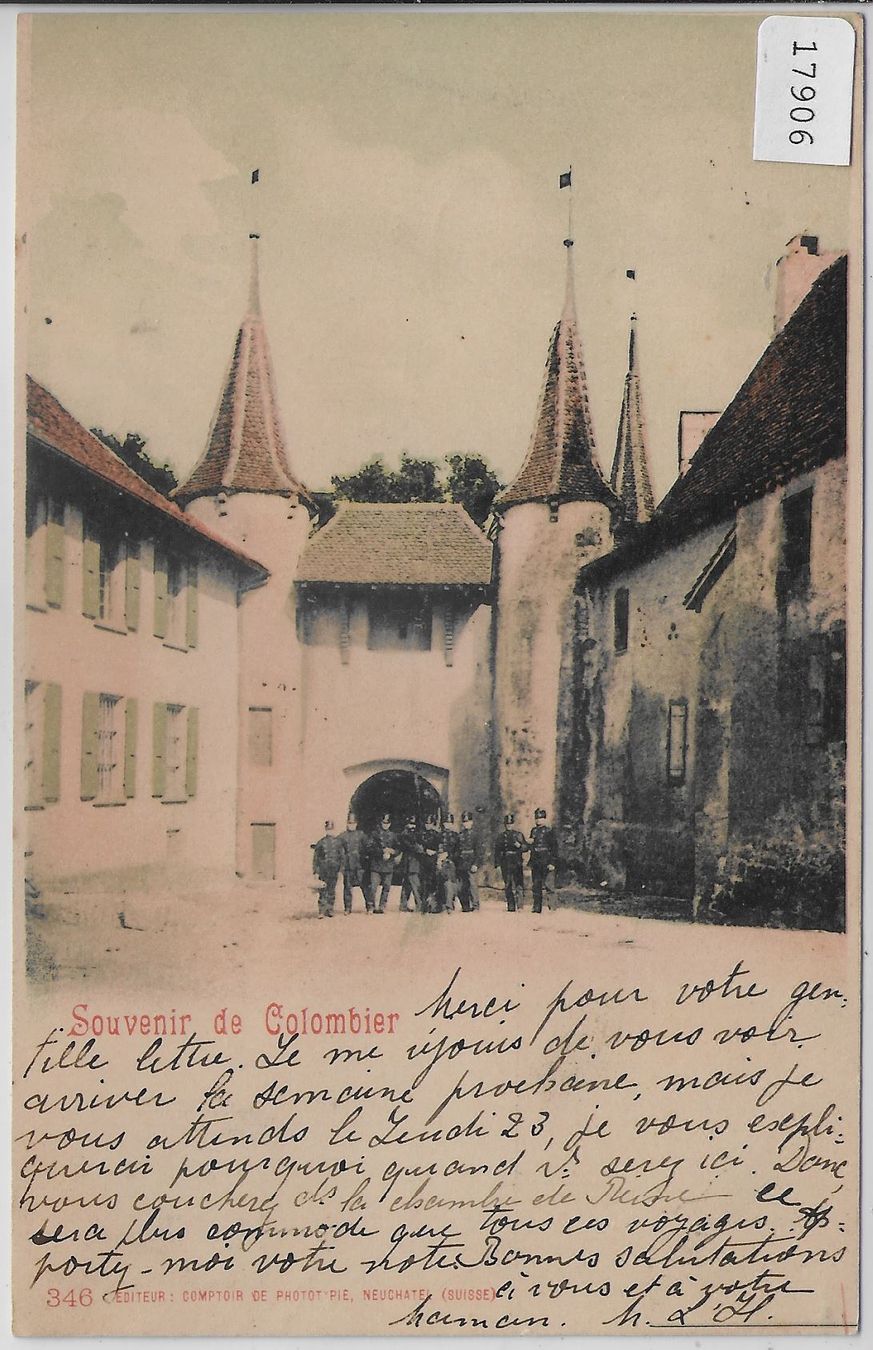 17906
Souvenir de Colombier
Merci pour votre gen-
tille lettre. Je me réjouis de vous voir
arriver la semaine prochaine, mais je
vous attends le Jeudi 23, je vous expli-
querai pourquoi quand vs. serez ici. Donc
vous coucherez ds la chambre de ce
sera plus commode que tous ces voyages. Ap-
portez-moi votre note. Bonnes salutations
à vous et à votre
maman. M. L'H.
346 EDITEUR: COMPTOIR DE PHOTOTYPIE, NEUCHATEL (SUISSE)